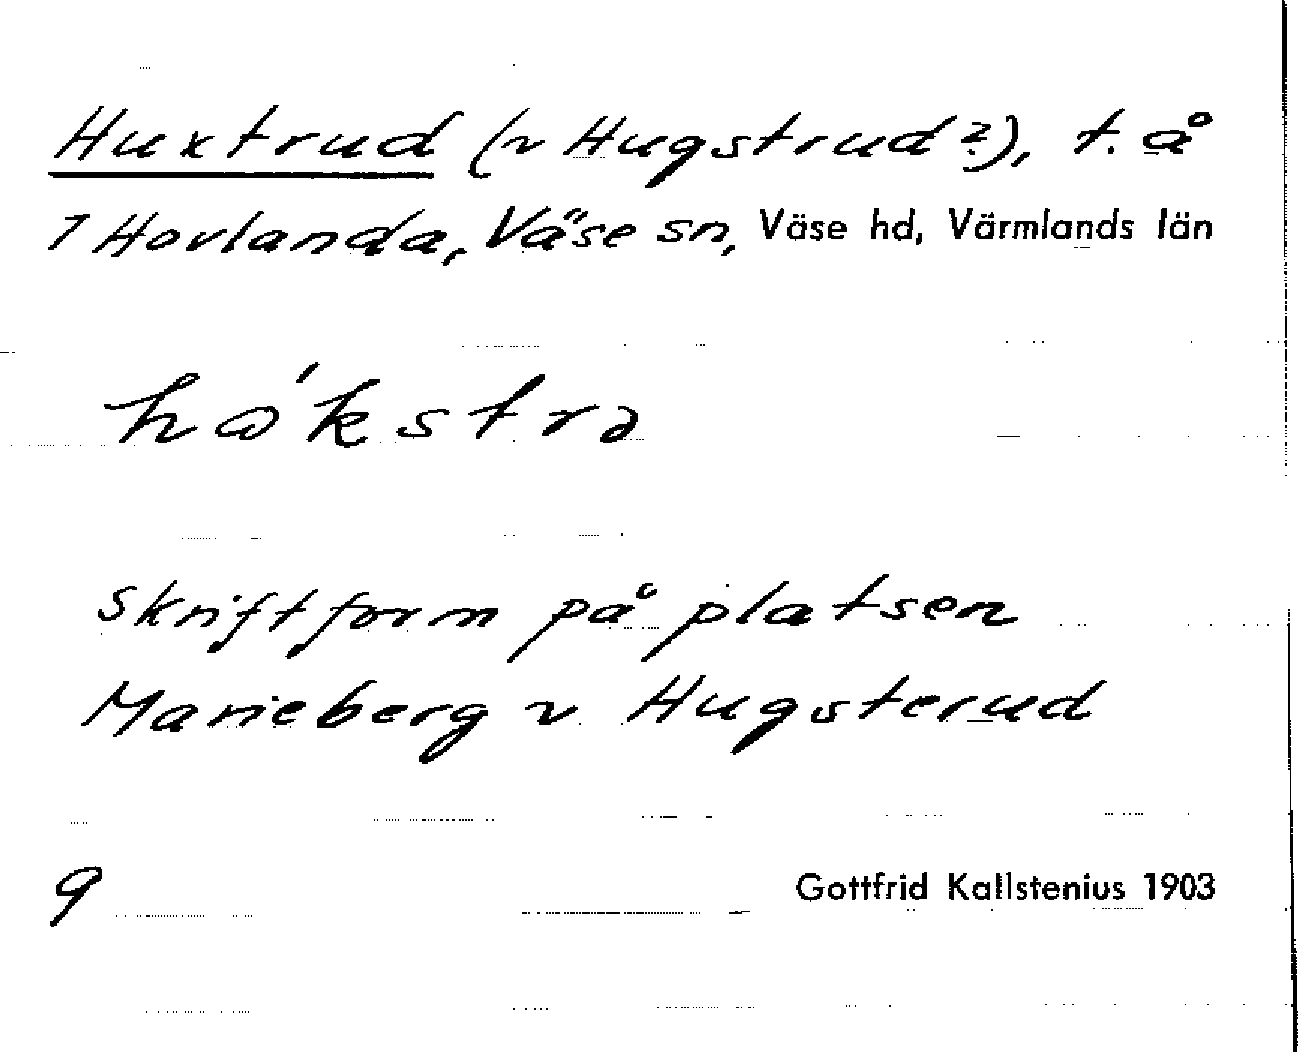 Huxtrud (v Hugstrud?), t. å
1 Hovlanda, Väse sn, Väse hd, Värmlands län
hɷ́kstrə
Skriftform på platsen
Marieberg v Hugsterud
9
Gottfrid Kallstenius 1903